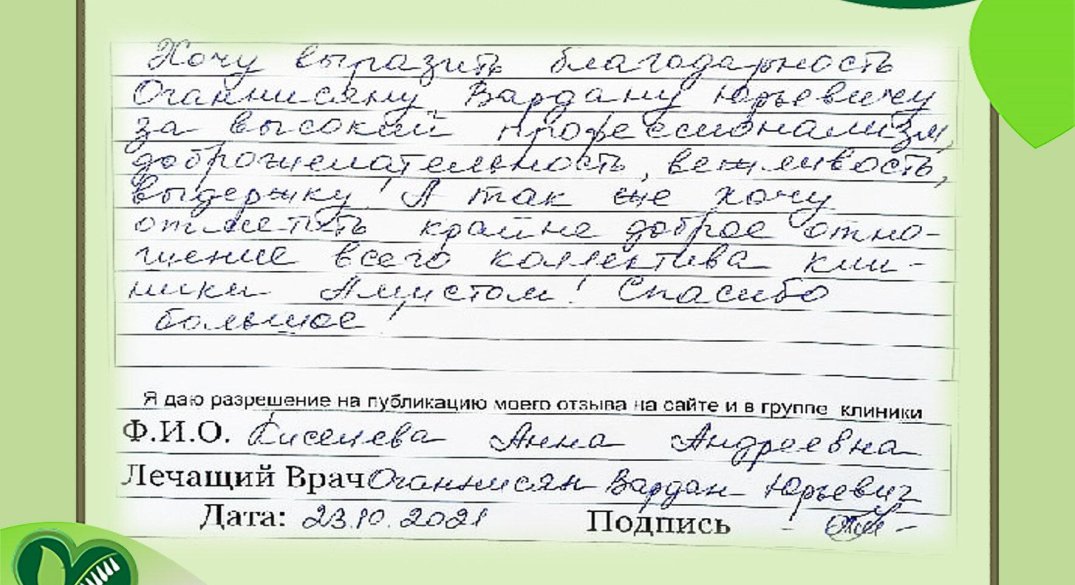 Хочу выразить благодарность
Оганнисяну Вардану Юрьевичу
за высокий профессионализм,
доброжелательность, вежливость,
выдержку! А так же хочу
отметить крайне доброе отно-
шение всего коллектива кли-
ники Амистом! Спасибо
большое!
Я даю разрешение на публикацию моего отзыва на сайте и в группе клиники
Ф.И.О. Киселева Анна Андреевна
Лечащий Врач Оганнисян Вардан Юрьевич
Дата: 23.10.2021 Подпись